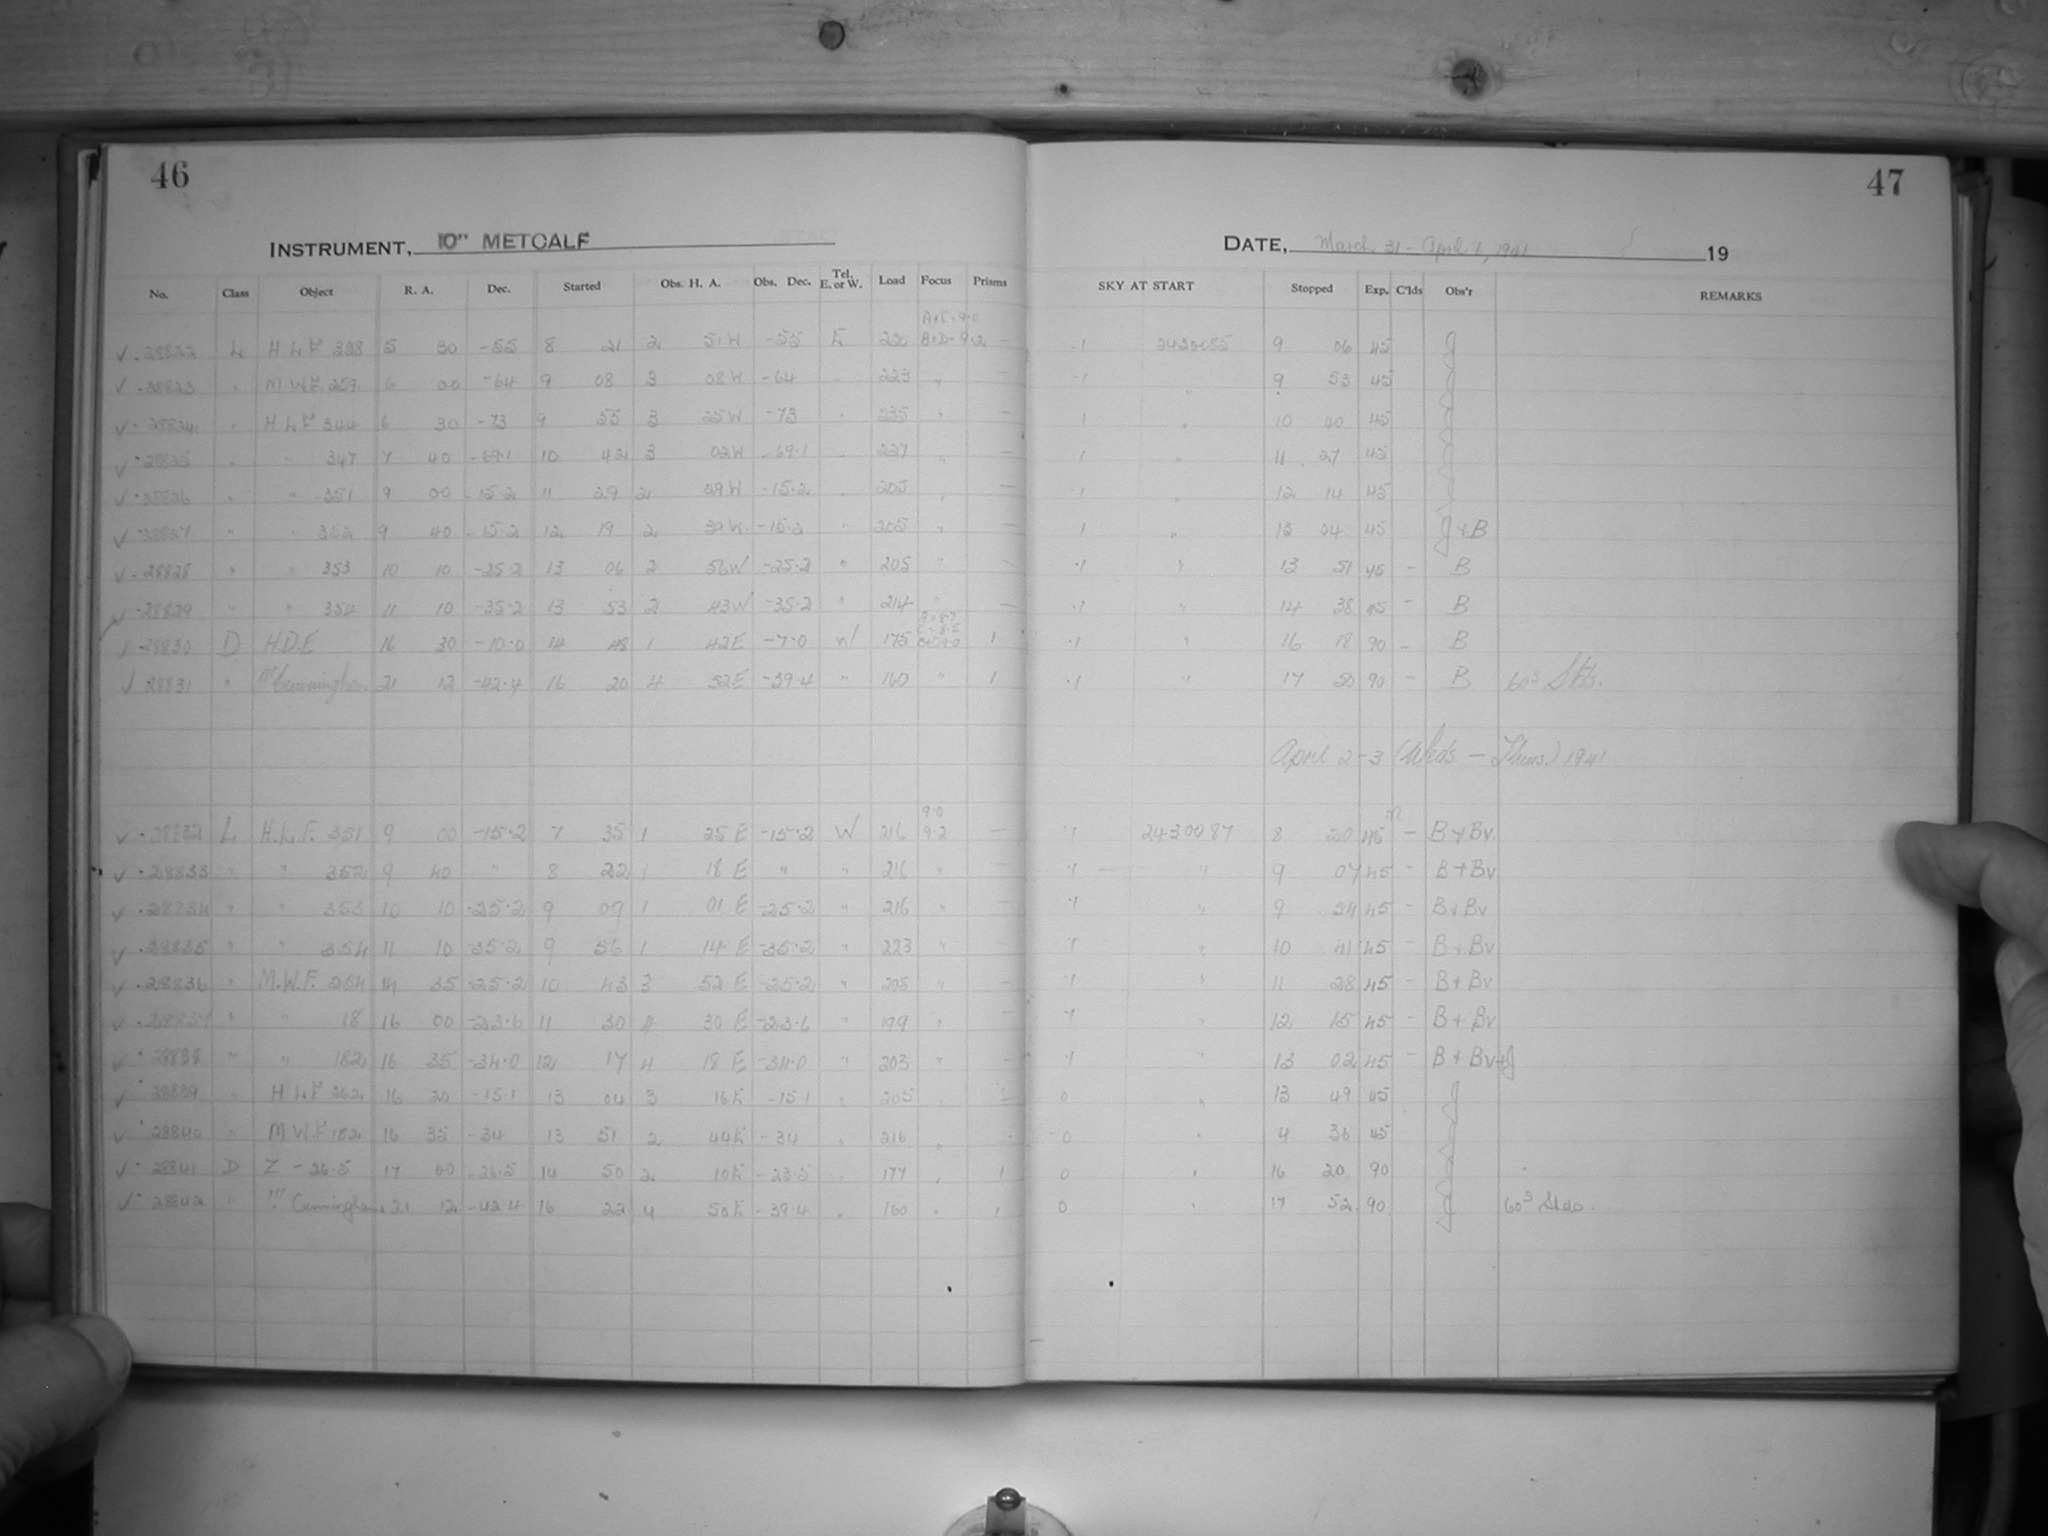 46
INSTRUMENT, 10" METCALF
No. Class Object R. A. Dec. Started Obs. H. A. Obs. Dec. Tel. E. or W. Load Focus Prisms
A+C-9.0
28822 L H.L.F 338 5 30 -55 8 21 2 51W -55 E 220 B+D-9.2 -
28823 " M.W.F. 259 6 00 -64 9 08 3 08W -64 " 223 " -
28824 " H.L.F 344 6 30 -73 9 55 3 25W -73 " 235 " -
28825 " " 347 7 40 -69.1 10 42 3 02W -69.1 227 " -
28826 " " 351 9 00 -15.2 11 29 2 29W -15.2 " 205 " -
28827 " " 352 9 40 -15.2 12 19 2 39W -15.2 " 205 " -
28828 " " 353 10 10 -25.2 13 06 2 56W -25.2 " 205 " -
28829 " " 354 11 10 -35.2 13 53 2 43W -35.2 " 214 " -
28830 D H.D.E 16 30 -10.0 14 48 1 42E -7.0 W 175 1
28831 " !!! Cunningham 21 12 -42.4 16 20 4 52E -39.4 " 160 " 1
9.0
28832 L H.L.F. 351 9 00 -15.2 7 35 1 25 E -15.2 W 216 9.2 -
28833 " " 352 9 40 " 8 22 1 18 E " " 216 " -
28834 " " 353 10 10 -25.2 9 09 1 01 E -25.2 " 216 " -
28835 " " 354 11 10 -35.2 9 56 1 14 E -35.2 " 223 " -
28836 " M.W.F. 264 14 35 -25.2 10 43 3 52 E -25.2 " 205 " -
28837 " " 18 16 00 -23.6 11 30 4 30 E -23.6 " 199 " -
28838 " " 182 16 35 -34.0 12 17 4 18 E -34.0 " 203 " -
28839 " H.L.F 362 16 20 -15.1 13 04 3 16E -15.1 " 205 " -
28840 " M.W.F 182 16 35 -34 13 51 2 44E -34 " 216 "
28841 D Z -26.5 17 00 -26.5 14 50 2 10E -23.5 " 177 " 1
28842 " !!! Cunningham 21 12 -42.4 16 22 4 50E -39.4 " 160 " 1
47
DATE, March 31 - April 1, 1941 19
SKY AT START Stopped Exp. C'lds Obs'r REMARKS
.1 2430085 9 06 45 J
.1 " 9 53 45
1 " 10 40 45
1 " 11 27 45
1 " 12 14 45
1 " 13 04 45 J+B
.1 " 13 51 45 - B
.1 " 14 38 45 - B
.1 " 16 18 90 - B
.1 " 17 50 90 - B 60s Stds.
April 2-3 (Weds. - Thurs.) 1941
.1 2430087 8 20 45m - B+Bv.
.1 " 9 07 45 - B+Bv
.1 " 9 54 45 - B+Bv
.1 " 10 41 45 - B+Bv
.1 " 11 28 45 - B+Bv
.1 " 12 15 45 - B+Bv
.1 " 13 02 45 - B+Bv+J
0 " 13 49 45
0 " 4 36 45
0 " 16 20 90
0 " 17 52 90 60s Stds.